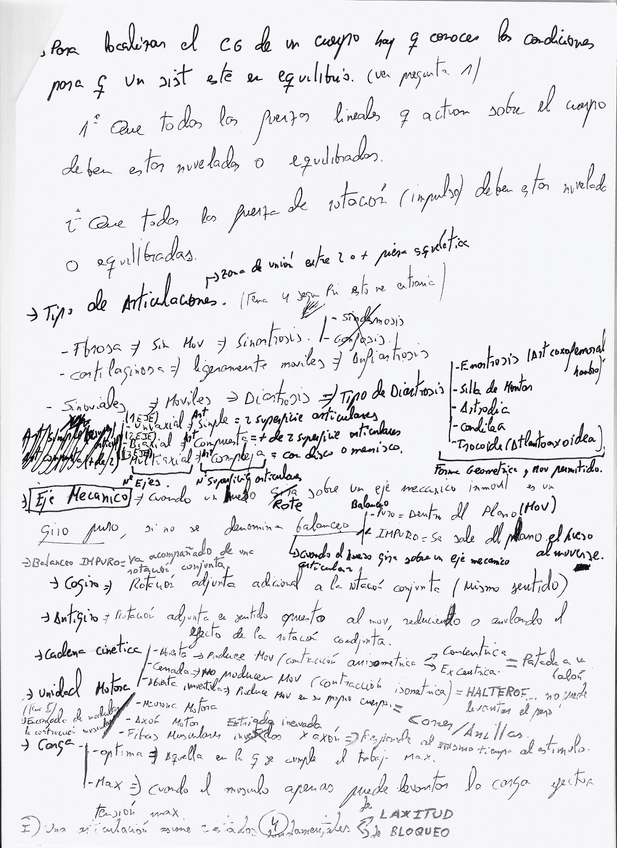 → Para localizar el CG de un cuerpo hay q conocer las condiciones
para q un sist esté en equilibrio. (ver pregunta 1)
1ª Que todas las fuerzas lineales q actuan sobre el cuerpo
deben estar niveladas o equilibradas.
2ª Que todas las fuerza de rotación (impulso) deben estar nivelada
o equilibradas.
→ zona de unión entre 2 o + pieza esquelética
→ Tipo de Articulaciones. (Tema 4
- Fibrosa ⇒ Sin Mov ⇒ Sinartrosis.
- sindesmosis
- gonfosis
- cartilaginosa ⇒ ligeramente moviles ⇒ Anfiartrosis
- Sinoviales ⇒ Moviles ⇒ Diartrosis ⇒ Tipo de Diartrosis
- Enartrosis (Art coxofemoral hombro)
- Silla de Montar
- Artrodia
- Condilea
- Trocoide (Atlantoaxoidea)
Forma Geometrica y Mov permitido.
(1 EJE) - Uniaxial
(2 EJE) - Biaxial
(3 EJE) - Multiaxial
Nº Ejes
Art Simple = 2 superficie articulares
Art Compuesta = + de 2 superficie articulares
Art Compleja = con disco o menisco.
Nº Superficie articulares
→ Eje Mecanico ⇒ Cuando un hueso Rote sobre un eje mecanico inmovil es un
Giro puro, si no se denomina balanceo
Balanceo
- Puro = Dentro del Plano (Mov)
- IMPURO = Se sale del plano el hueso al moverse.
→ cuando el hueso gira sobre un eje mecanico articular
→ Balanceo IMPURO = va acompañado de una rotación conjunta
→ Cogiro ⇒ Rotación adjunta adicional a la rotación conjunta (Mismo sentido)
→ Antigiro = Rotación adjunta en sentido opuesto al mov, reduciendo o anulando el
efecto de la rotación conjunta.
→ Cadena cinetica
- Abierta → Produce Mov (contracción anisometrica
→ Concentrica
→ Excentrica = Patada a un balón
- Cerrada → No producen Mov (contracción isometrica) = HALTEROF... no puede
levantar el peso
- Abierta invertida → Produce Mov en su propio cuerpo =
Correr/Anillas.
→ Unidad Motora
- Neurona Motora
- Axón Motor
- Fibras Musculares inervadas x axón ⇒ Responde al mismo tiempo al estimulo.
→ Carga
- optima ⇒ Aquella en la q se cumple el trabajo max.
- Max ⇒ Cuando el musculo apenas puede levantar la carga ejerza
tensión max
I) Una articulación asume 2 estados fundamentales
de LAXITUD
de BLOQUEO